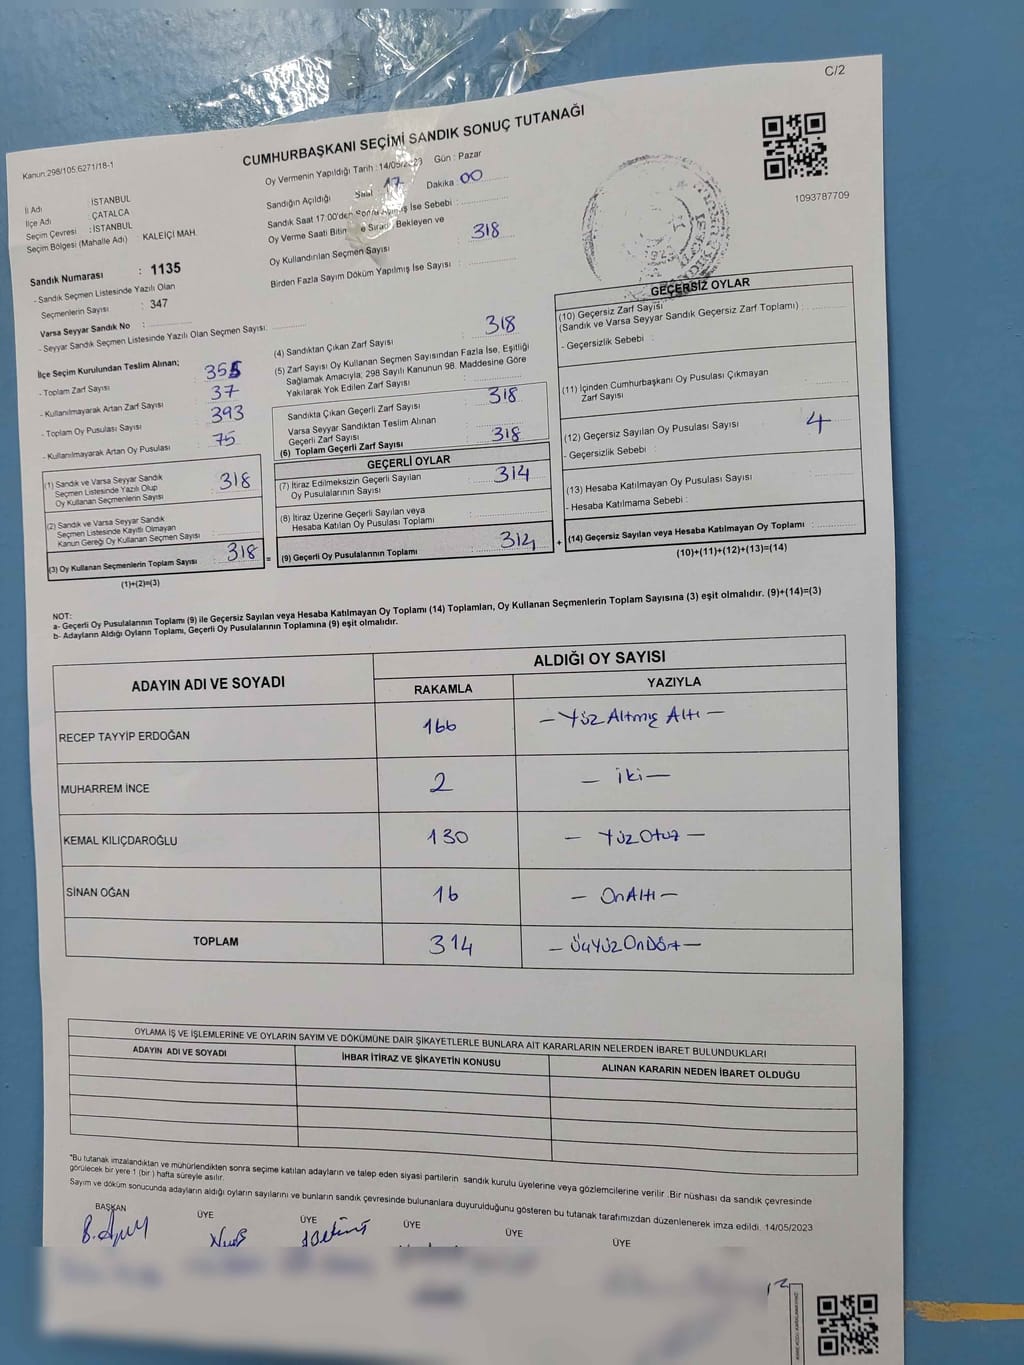 C/2
Kanun:298/105:6271/18-1
CUMHURBAŞKANI SEÇİMİ SANDIK SONUÇ TUTANAĞI
1093787709
İl Adı : İSTANBUL
İlçe Adı : ÇATALCA
Seçim Çevresi : İSTANBUL
Seçim Bölgesi (Mahalle Adı) KALEİÇİ MAH.
Sandık Numarası : 1135
- Sandık Seçmen Listesinde Yazılı Olan
Seçmenlerin Sayısı : 347
Varsa Seyyar Sandık No :
- Seyyar Sandık Seçmen Listesinde Yazılı Olan Seçmen Sayısı:
Oy Vermenin Yapıldığı Tarih : 14/05/2023 Gün : Pazar
Sandığın Açıldığı Saat 17 Dakika : 00
Sandık Saat 17.00'den Sonra Açılmış İse Sebebi :
Oy Verme Saati Bitiminde Sırada Bekleyen ve
Oy Kullandırılan Seçmen Sayısı : 318
Birden Fazla Sayım Döküm Yapılmış İse Sayısı :
İlçe Seçim Kurulundan Teslim Alınan;
- Toplam Zarf Sayısı : 355
- Kullanılmayarak Artan Zarf Sayısı : 37
- Toplam Oy Pusulası Sayısı : 393
- Kullanılmayarak Artan Oy Pusulası : 75
(1) Sandık ve Varsa Seyyar Sandık
Seçmen Listesinde Yazılı Olup
Oy Kullanan Seçmenlerin Sayısı : 318
(2) Sandık ve Varsa Seyyar Sandık
Seçmen Listesinde Kayıtlı Olmayan
Kanun Gereği Oy Kullanan Seçmen Sayısı :
(3) Oy Kullanan Seçmenlerin Toplam Sayısı : 318 =
(1)+(2)=(3)
(4) Sandıktan Çıkan Zarf Sayısı : 318
(5) Zarf Sayısı Oy Kullanan Seçmen Sayısından Fazla İse, Eşitliği
Sağlamak Amacıyla; 298 Sayılı Kanunun 98. Maddesine Göre
Yakılarak Yok Edilen Zarf Sayısı :
Sandıkta Çıkan Geçerli Zarf Sayısı : 318
Varsa Seyyar Sandıktan Teslim Alınan
Geçerli Zarf Sayısı :
(6) Toplam Geçerli Zarf Sayısı : 318
GEÇERLİ OYLAR
(7) İtiraz Edilmeksizin Geçerli Sayılan
Oy Pusulalarının Sayısı : 314
(8) İtiraz Üzerine Geçerli Sayılan veya
Hesaba Katılan Oy Pusulası Toplamı :
(9) Geçerli Oy Pusulalarının Toplamı : 314 +
GEÇERSİZ OYLAR
(10) Geçersiz Zarf Sayısı
(Sandık ve Varsa Seyyar Sandık Geçersiz Zarf Toplamı) :
- Geçersizlik Sebebi :
(11) İçinden Cumhurbaşkanı Oy Pusulası Çıkmayan
Zarf Sayısı :
(12) Geçersiz Sayılan Oy Pusulası Sayısı : 4
- Geçersizlik Sebebi :
(13) Hesaba Katılmayan Oy Pusulası Sayısı :
- Hesaba Katılmama Sebebi :
(14) Geçersiz Sayılan veya Hesaba Katılmayan Oy Toplamı :
(10)+(11)+(12)+(13)=(14)
NOT:
a- Geçerli Oy Pusulalarının Toplamı (9) ile Geçersiz Sayılan veya Hesaba Katılmayan Oy Toplamı (14) Toplamları, Oy Kullanan Seçmenlerin Toplam Sayısına (3) eşit olmalıdır. (9)+(14)=(3)
b- Adayların Aldığı Oyların Toplamı, Geçerli Oy Pusulalarının Toplamına (9) eşit olmalıdır.
ADAYIN ADI VE SOYADI ALDIĞI OY SAYISI
RAKAMLA YAZIYLA
RECEP TAYYİP ERDOĞAN 166 - Yüz Altmış Altı -
MUHARREM İNCE 2 - iki -
KEMAL KILIÇDAROĞLU 130 - Yüz Otuz -
SİNAN OĞAN 16 - OnAltı -
TOPLAM 314 - ÜçYüzOnDört -
OYLAMA İŞ VE İŞLEMLERİNE VE OYLARIN SAYIM VE DÖKÜMÜNE DAİR ŞİKAYETLERLE BUNLARA AİT KARARLARIN NELERDEN İBARET BULUNDUKLARI
ADAYIN ADI VE SOYADI İHBAR İTİRAZ VE ŞİKAYETİN KONUSU ALINAN KARARIN NEDEN İBARET OLDUĞU
*Bu tutanak imzalandıktan ve mühürlendikten sonra seçime katılan adayların ve talep eden siyasi partilerin sandık kurulu üyelerine veya gözlemcilerine verilir. Bir nüshası da sandık çevresinde
görülecek bir yere 1 (bir) hafta süreyle asılır.
Sayım ve döküm sonucunda adayların aldığı oyların sayılarını ve bunların sandık çevresinde bulunanlara duyurulduğunu gösteren bu tutanak tarafımızdan düzenlenerek imza edildi. 14/05/2023
BAŞKAN ÜYE ÜYE ÜYE ÜYE ÜYE